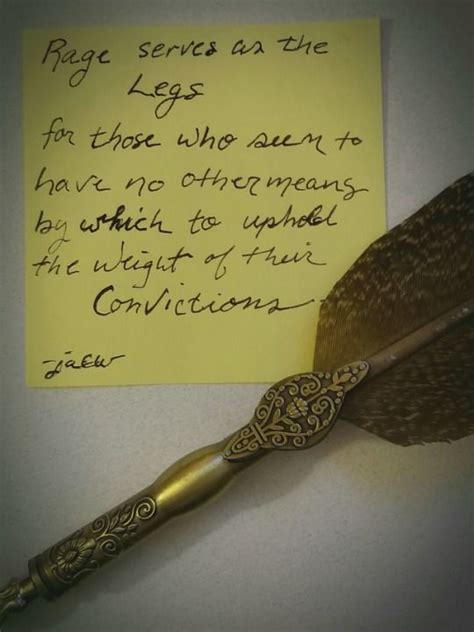 Rage serves as the
Legs
for those who seem to
have no other means
by which to uphold
the weight of their
Convictions
-jaew